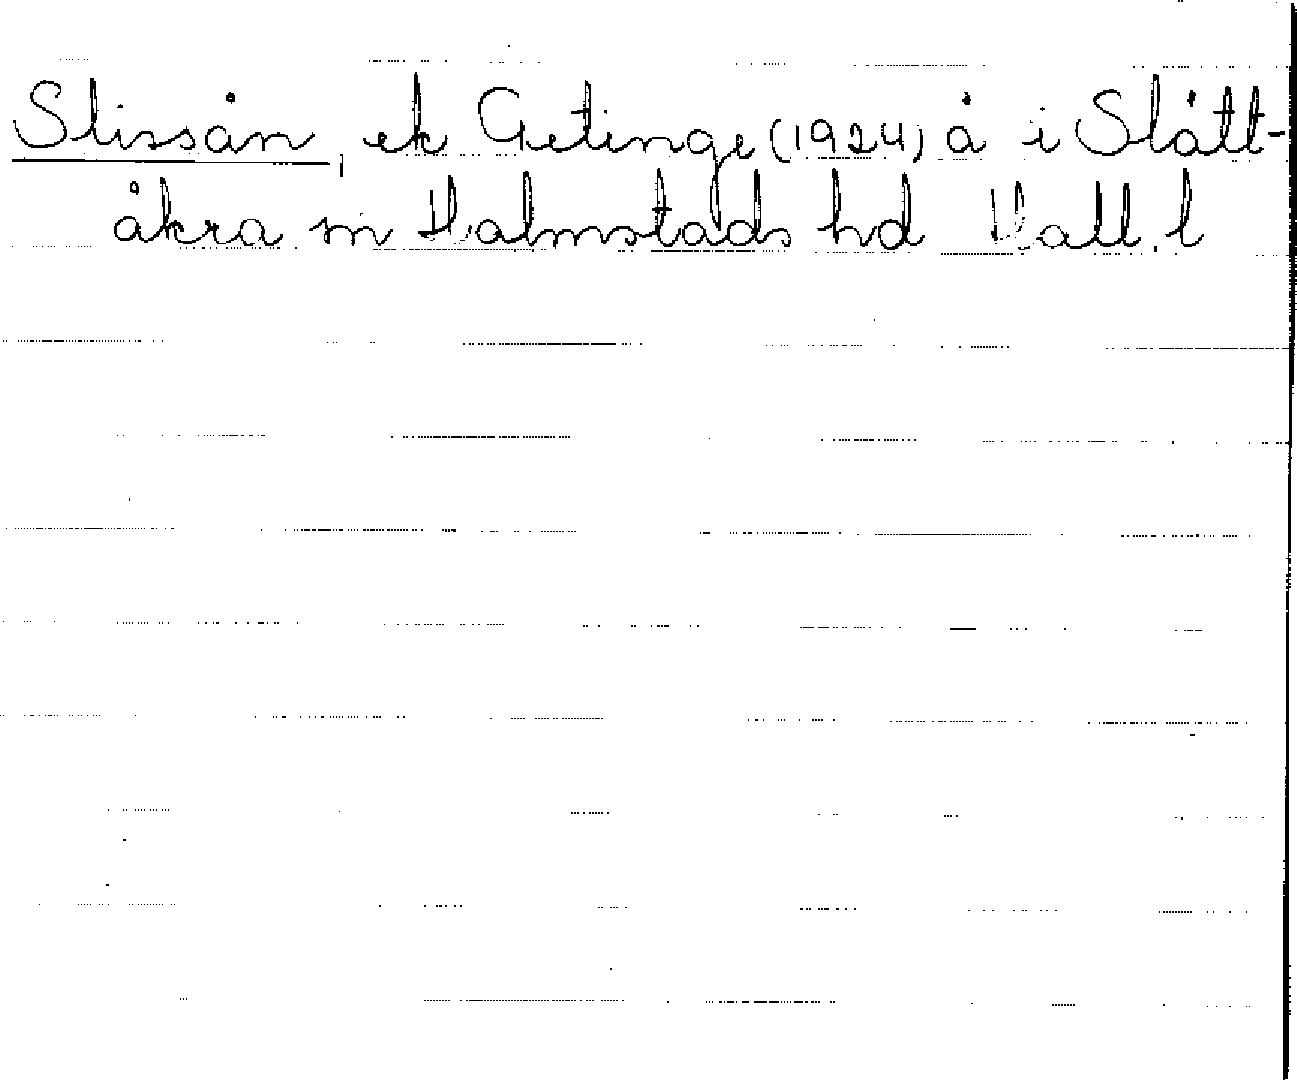 Slissån, ek Getinge (1924) å i Slått-
åkra sn Halmstads hd Hall. l